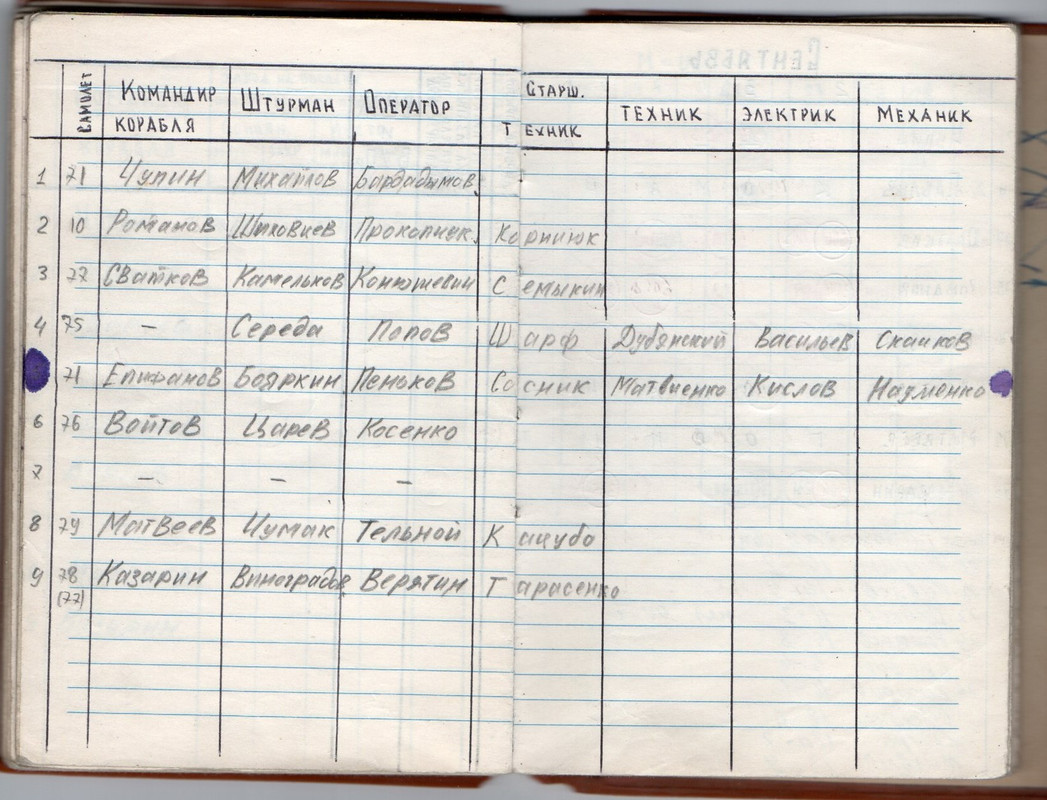 Самолет Командир корабля Штурман Оператор Старш. техник техник электрик Механик
1 71 Чупин Михайлов
2 10 Романов Прокопчук Корниюк
3 Сватков Камельков Конюшевич Семыкин
4 75 — Середа Попов Шарф Дубянский Васильев Скачков
71 Епифанов Бояркин Пеньков Сосник Матвиенко Кислов Надменко
6 76 Войтов Царев Косенко
7 — — —
8 79 Матвеев Чумак Тельной Кацуба
9 78 (77) Казарин Виноградов Верятин Тарасенко